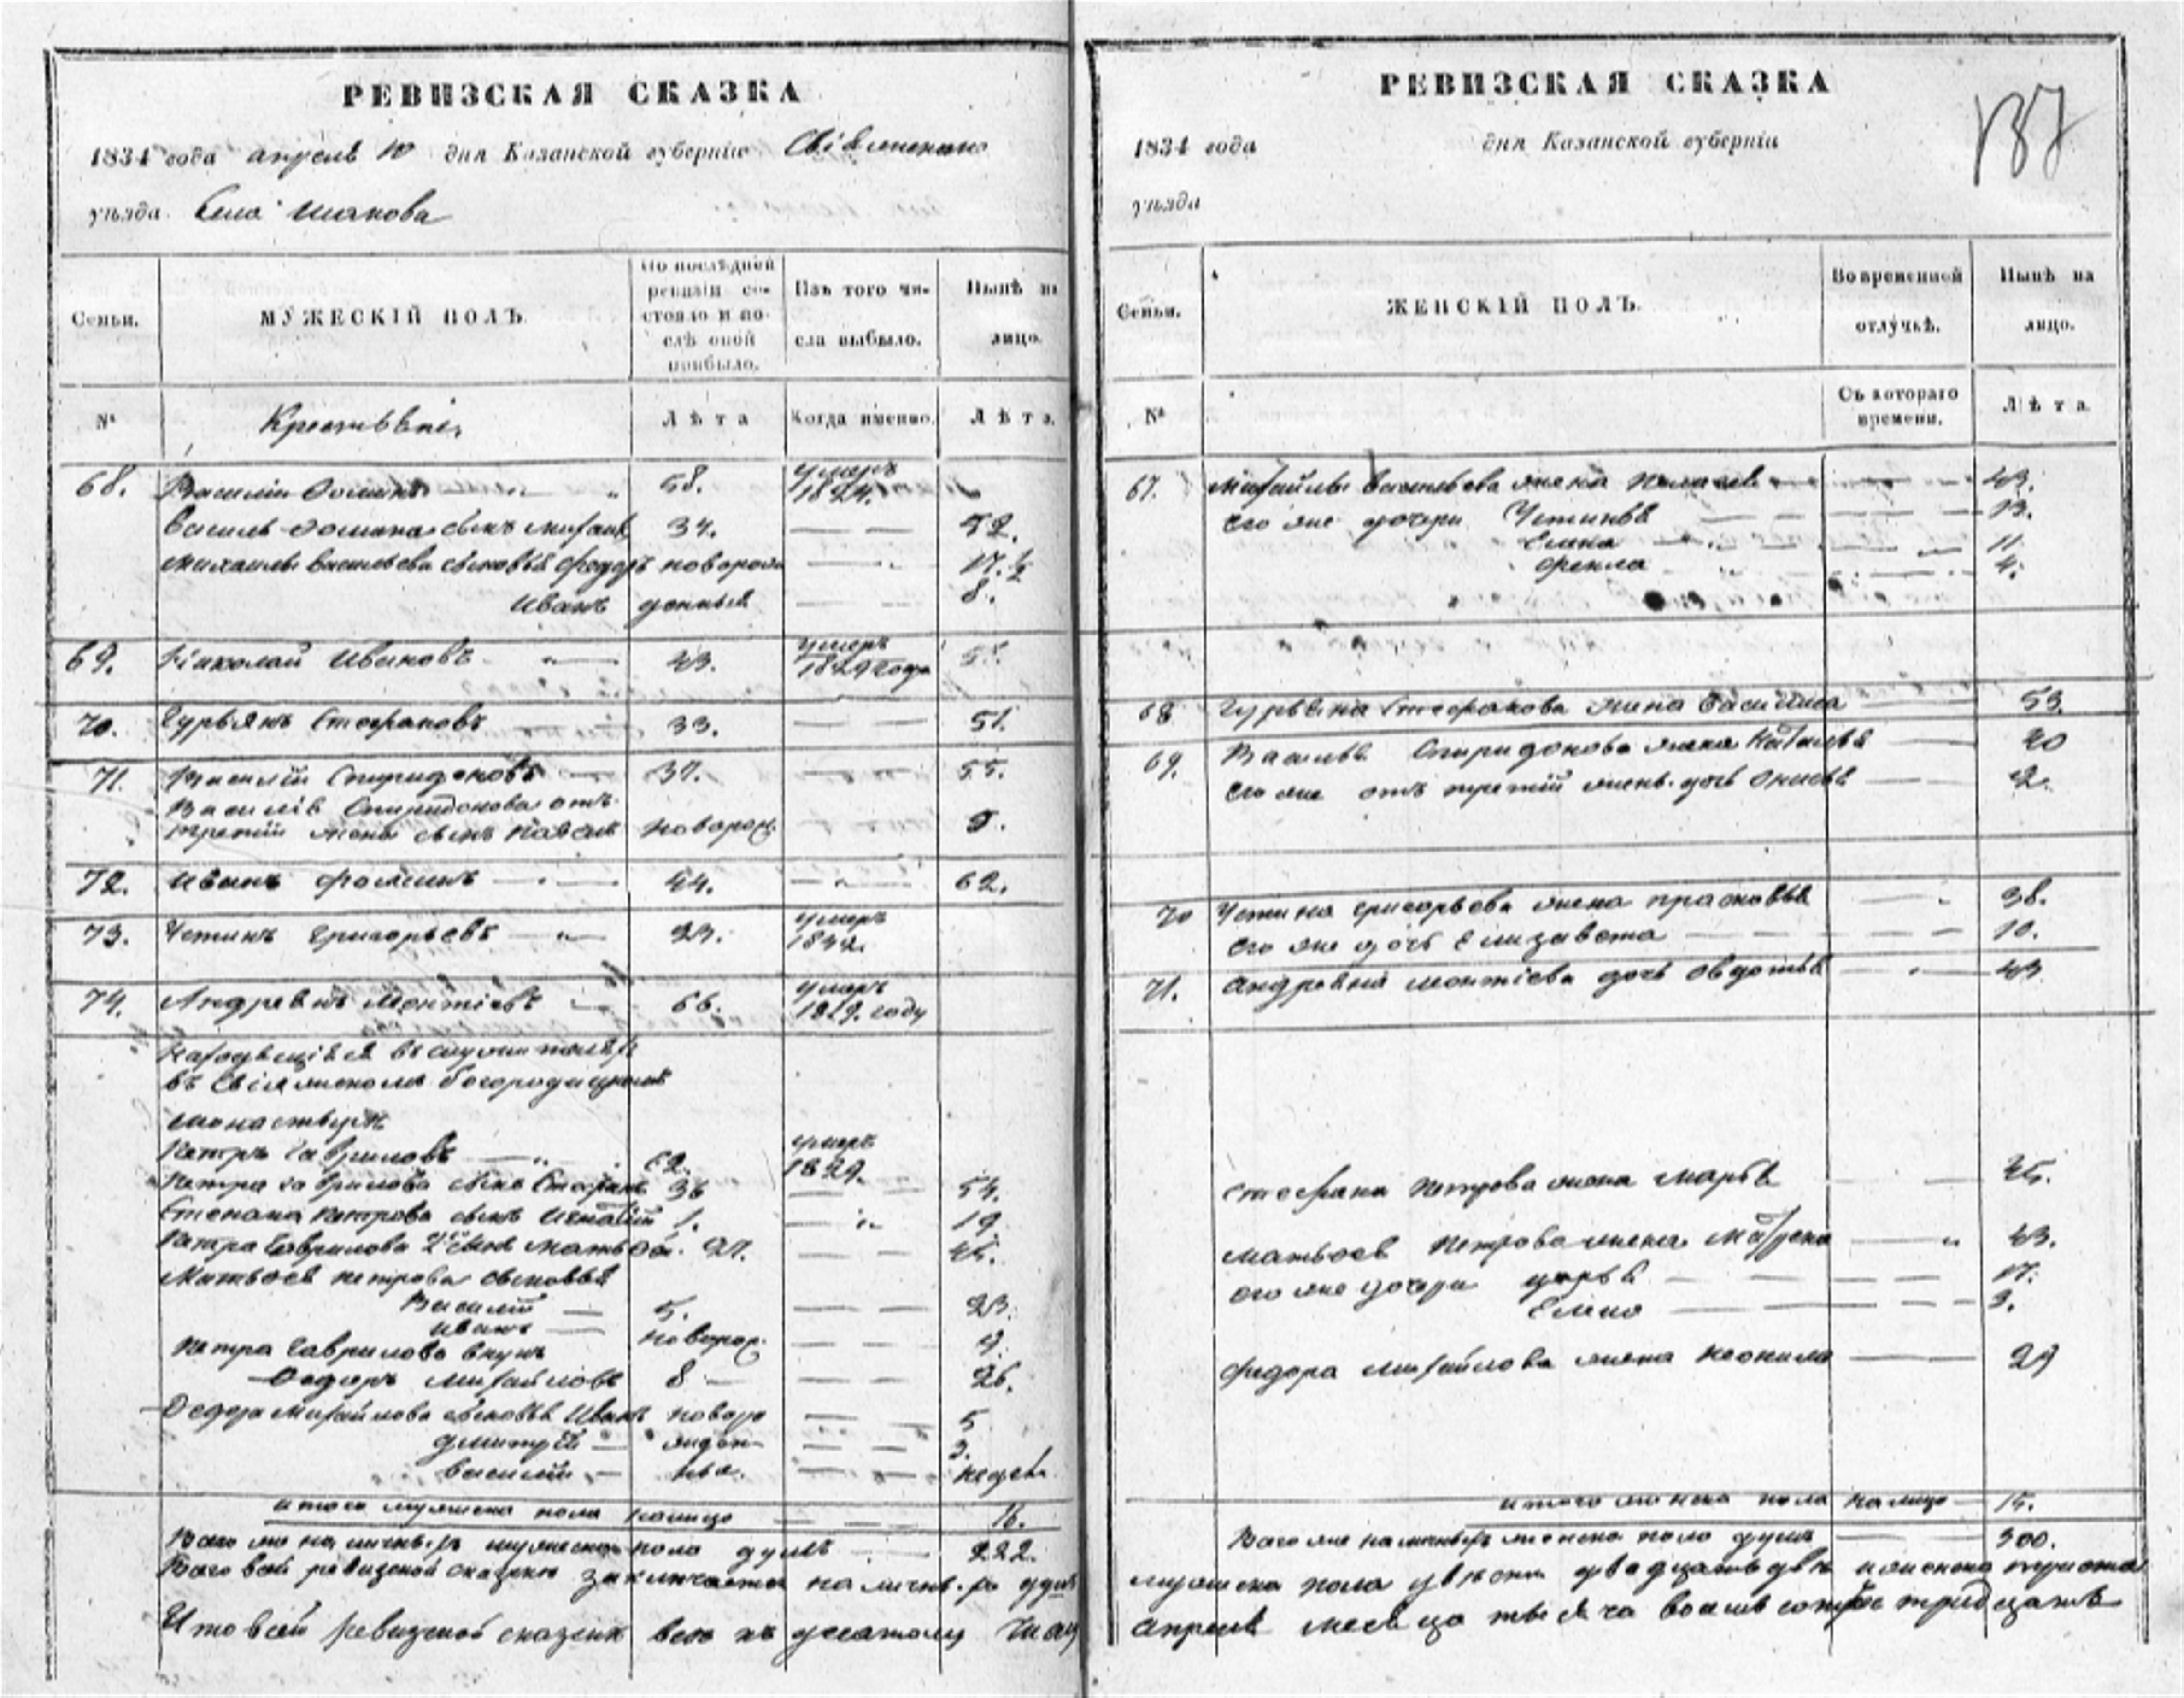 РЕВИЗСКАЯ СКАЗКА
1834 года апреля 10 дня Казанской губерніи Свіяжскаго
уѣзда Села
Семьи.
МУЖЕСКІЙ ПОЛЪ.
По послѣдней ревизіи состояло и послѣ оной прибыло.
Изъ того числа выбыло.
Нынѣ на лицо.
№
Крестьяне,
Лѣта
Когда именно.
Лѣта.
68. Василій 58. умеръ 1824.
сынъ 34. 52.
Михаилы Васильева сыновья Федоръ новорож 17.½
Иванъ денныя 8.
69. Николай Ивановъ 43. умеръ 1829 года
70. Гурьянъ Стефановъ 33. 51.
71. Василій Спиридоновъ 37. 55.
Василія Спиридонова отъ
третій жены сынъ новорож. 5.
72. Иванъ Фоминъ 44. 62.
73. Устинъ Григорьевъ 23. умеръ
74. Андреянъ Монтіевъ 66. умеръ году
въ Свіяжскомъ Богородицкомъ
монастырѣ
Петръ Гавриловъ 62. умеръ 1829.
Петра Гаврилова сынъ Стефанъ 36 54.
Степана Петрова сынъ Игнатій 1. 19
Петра Гаврилова 2й сынъ Матвѣй. 27. 45.
Матвѣя Петрова сыновья
Василій 5. 23.
Иванъ новорож. 9.
Петра Гаврилова внукъ
Федоръ Михайловъ 8 26.
Федора Михайлова сыновья Иванъ новоро 5
Дмитрій жден 3.
Василій ные. недел.
итого мужеска пола налицо 16.
Всего же наличныхъ мужеска пола душъ 222.
Всего въ сей ревизской сказкѣ заключается наличныхъ душъ
ревизской сказкѣ всѣ къ десятому числу
РЕВИЗСКАЯ СКАЗКА
137
1834 года дня Казанской губерніи
уѣзда
Семьи.
ЖЕНСКІЙ ПОЛЪ.
Во временной отлучкѣ.
Нынѣ на лицо.
№
Съ котораго времени.
Лѣта.
67. Михайлы Васильева жена Пелагея 43.
его же дочери Устинья 13.
Елена 11.
Фекла 4.
68 Гурьяна Стефанова жена Василиса 53.
69. Василья Спиридонова жена Наталья 20
его же отъ третій жены дочь 2.
70 Устина Григорьева жена Прасковья 38.
его же дочь Елизавета 10.
71. Андреяна Монтіева дочь Овдотья 43
Стефана Петрова жена Марья 45.
Матвѣя Петрова жена Матрена 43.
его же дочери 17.
Елена 9.
Федора Михайлова жена Неонила 29
итого женска пола налицо 15.
Всего же наличныхъ женска пола душъ 300.
мужеска пола двѣсти двадцать двѣ и женска триста
апреля месяца тысяча восемьсотъ тридцать